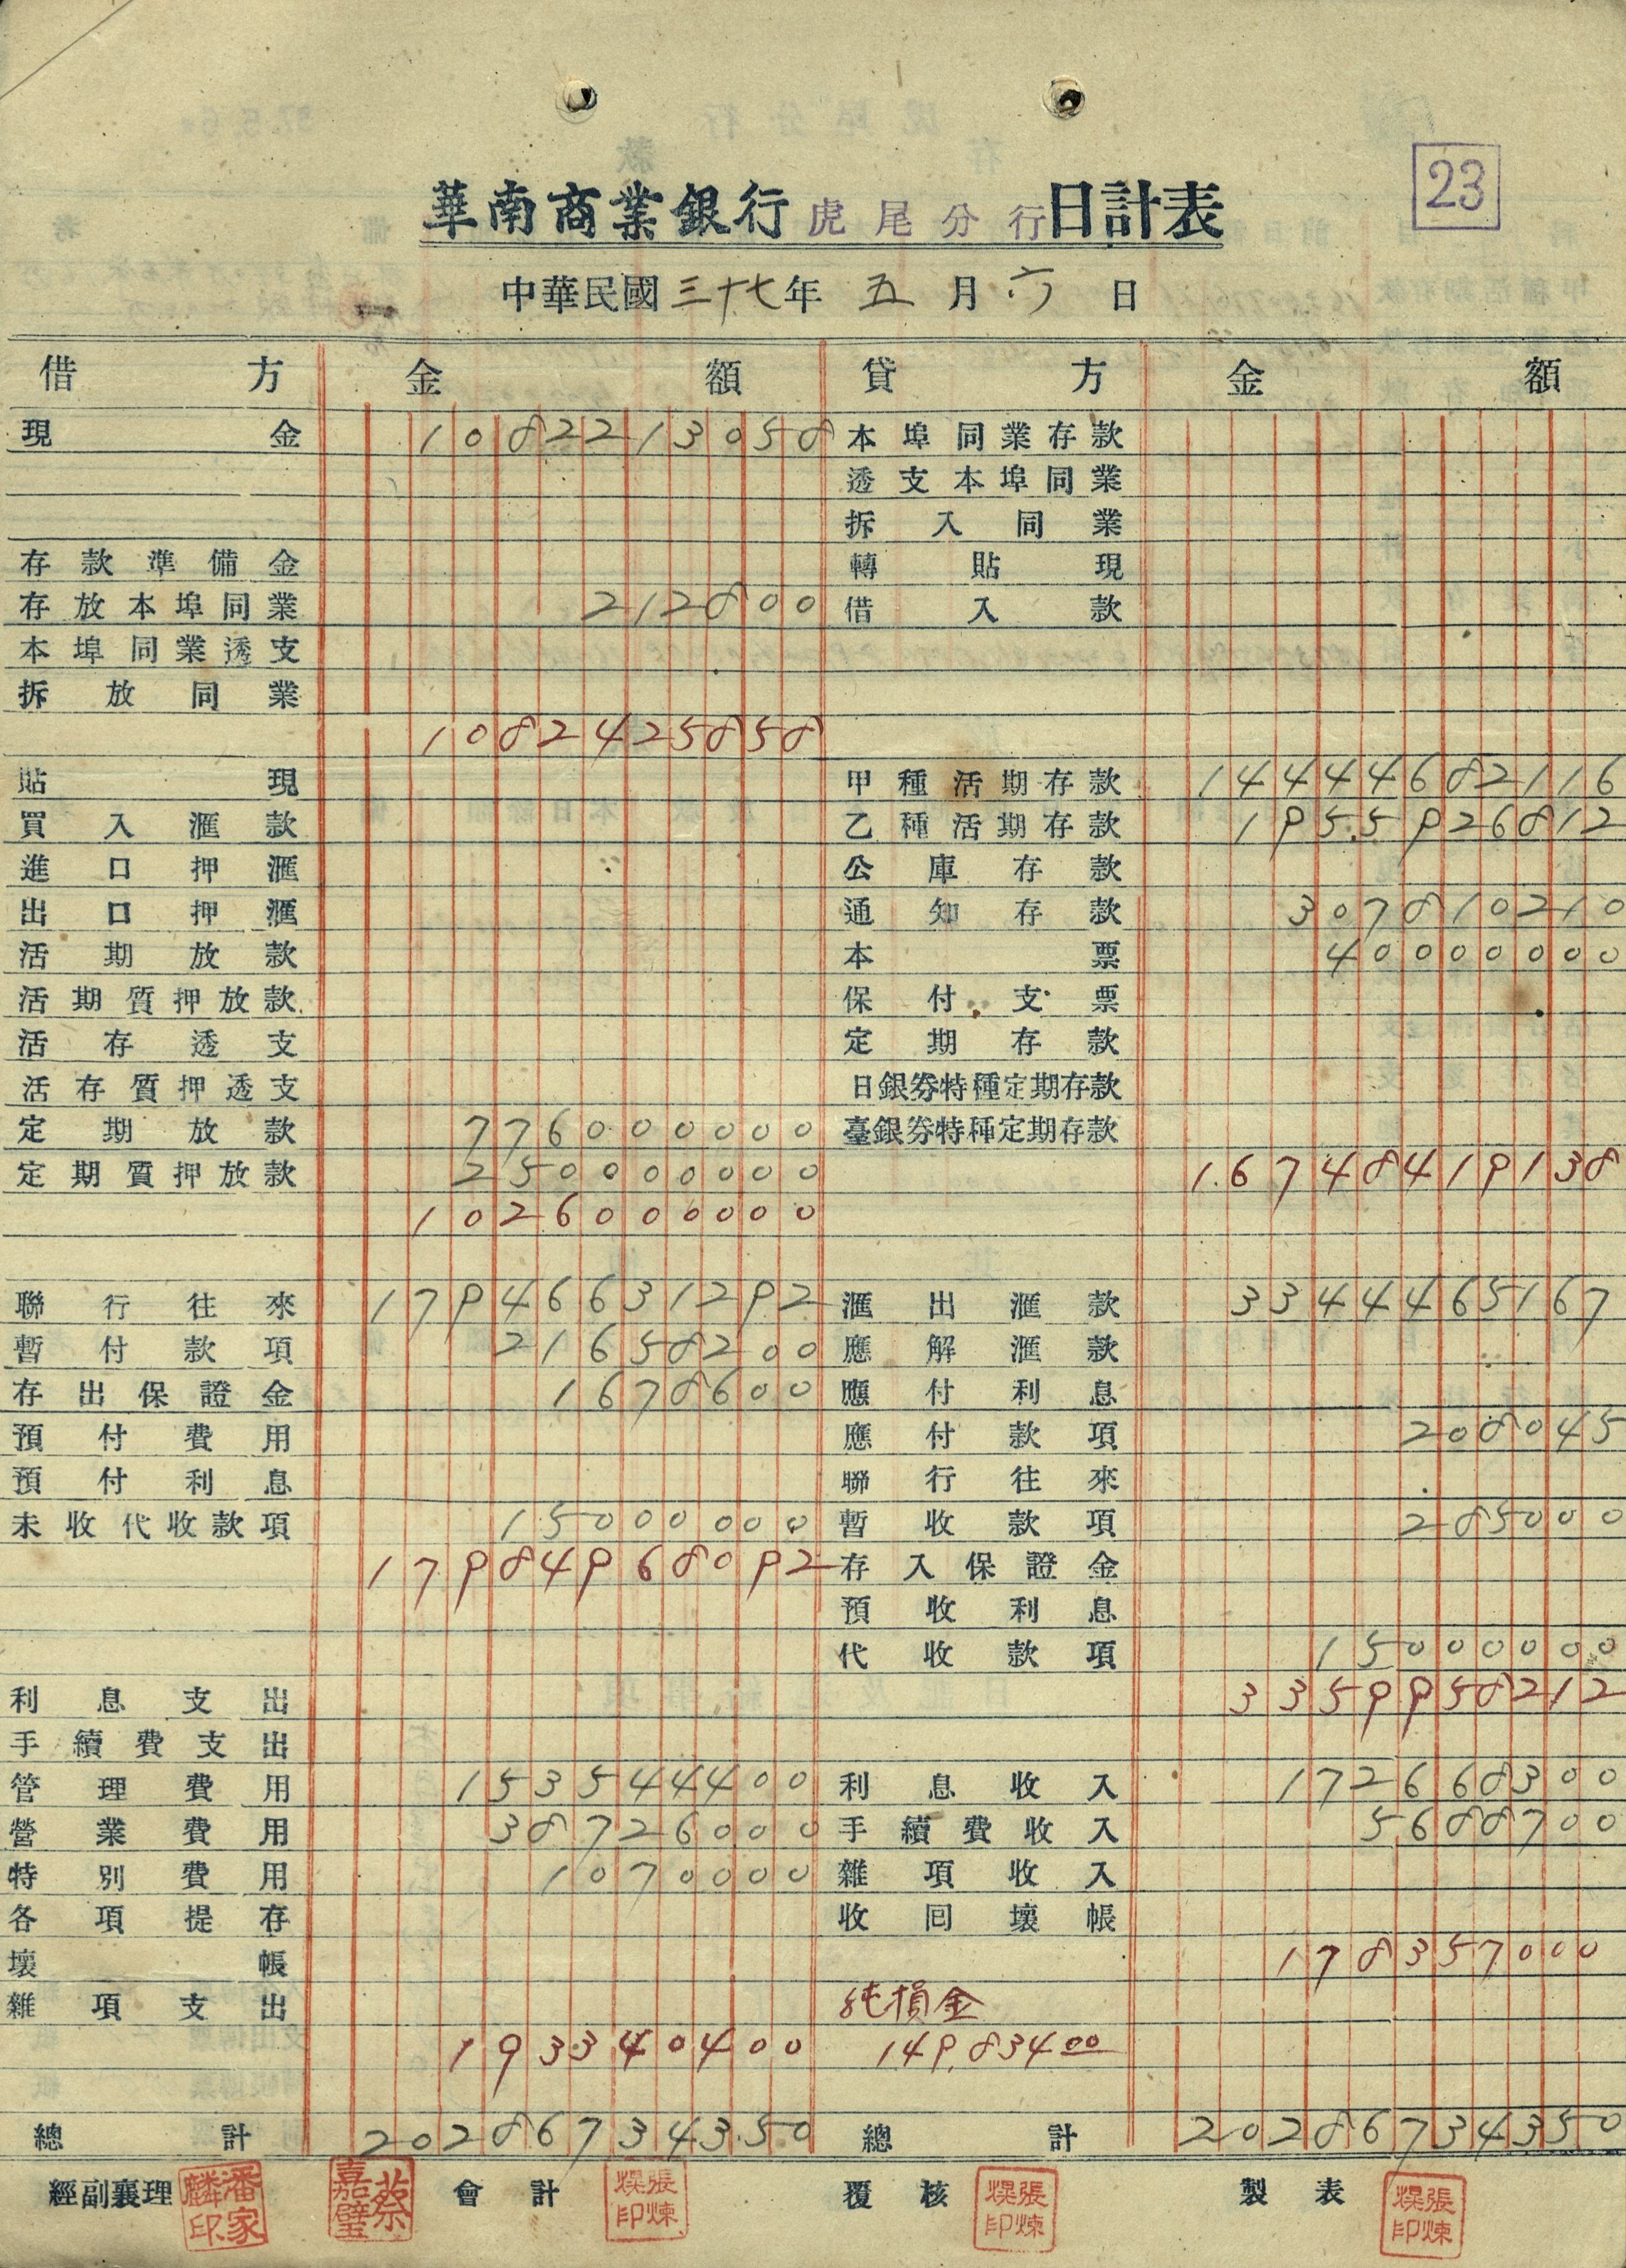 23
華南商業銀行虎尾分行日計表
中華民國三十七年五月六日
借方 金額 貸方 金額
現金 1082213058 本埠同業存款
透支本埠同業
拆入同業
存款準備金 轉貼現
存放本埠同業 212800 借入款
本埠同業透支
拆放同業
1082425858
貼現 甲種活期存款 14444682116
買入滙款 乙種活期存款 1955926812
進口押滙 公庫存款
出口押滙 通知存款 307810210
活期放款 本票 40000000
活期質押放款 保付支票
活存透支 定期存款
活存質押透支 日銀券特種定期存款
定期放款 776000000 臺銀券特種定期存款
定期質押放款 250000000 16748419138
1026000000
聯行往來 17946631292 滙出滙款 3344465167
暫付款項 21658200 應解滙款
存出保證金 1678600 應付利息
預付費用 應付款項 208045
預付利息 聯行往來
未收代收款項 15000000 暫收款項 285000
17984968092 存入保證金
預收利息
代收款項 15000000
利息支出 3359958212
手續費支出
管理費用 153544400 利息收入 172668300
營業費用 38726000 手續費收入 5688700
特別費用 1070000 雜項收入
各項提存 收回壞帳
壞帳 178357000
雜項支出 純損金
193340400 149,834.00
總計 20286734350 總計 20286734350
經副襄理 潘家麟印 蔡嘉璧 會計 張煉焿印 覆核 張煉焿印 製表 張煉焿印